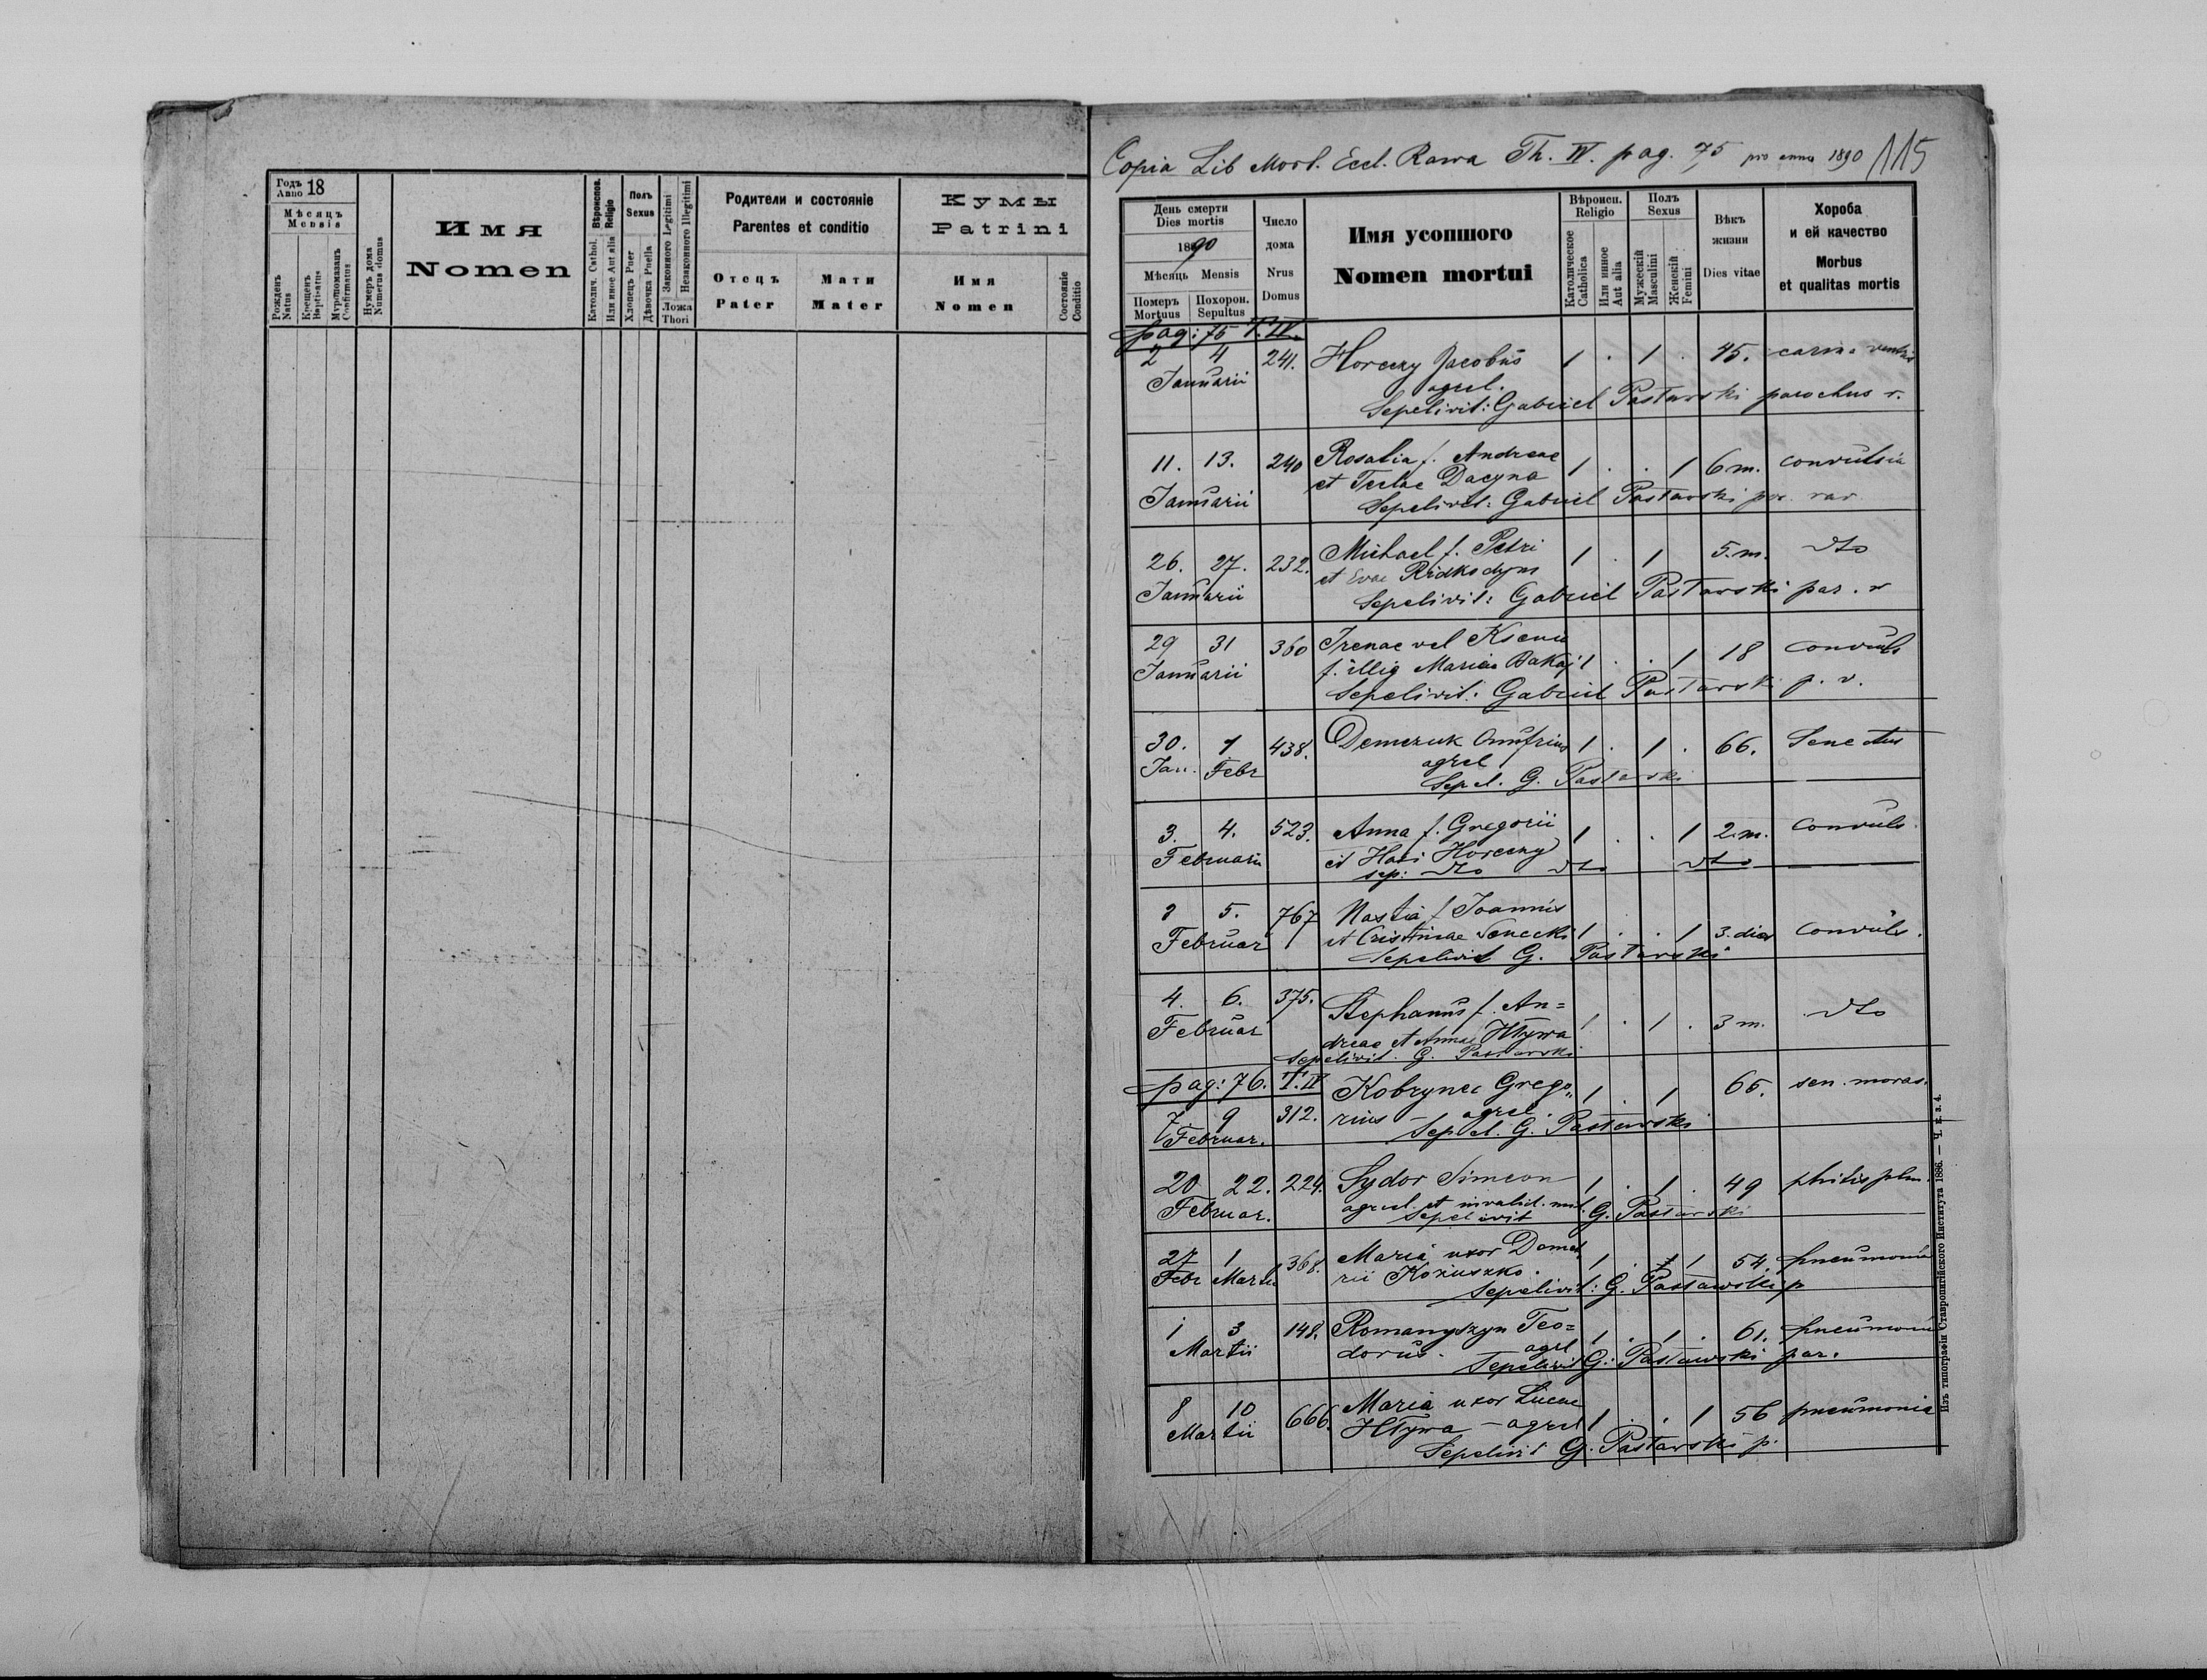 Годъ Anno 18
Мѣсяцъ
Mensis
Рожденъ Natus
Крещенъ Baptisatus
Мѵропомазанъ Confirmatus
Нумеръ дома Numerus domus
Имя
Nomen
Вѣроиспов. Religio
Католич. Cathol.
Или иное Aut alia
Полъ
Sexus
Хлопецъ Puer
Дѣвочка Puella
Законного Legitimi
Незаконного Illegitimi
Ложа
Thori
Родители и состоянiе
Parentes et conditio
Отецъ
Pater
Мати
Mater
Кумы
Patrini
Имя
Nomen
Состоянiе Conditio
Copia Lib Mort. Eccl. Rawa Th. IV. pag. 75 pro anno 1890 115
День смерти
Dies mortis
1890
Мѣсяць Mensis
Померъ Mortuus
Похорон. Sepultus
Число
дома
Nrus
Domus
Имя усопшого
Nomen mortui
Вѣроисп.
Religio
Католическое Catholica
Или инное Aut alia
Полъ
Sexus
Мужескiй Masculini
Женскiй Femini
Вѣкъ
жизни
Dies vitae
Хороба
и ей качество
Morbus
et qualitas mortis
pag: 75 T. IV.
2 4 241. Horeczy Jacobus 1 . 1 . 45.
Januarii agrel.
Sepelivit: Gabriel Pastawski parochus r.
11. 13. 240 Rosalia f. Andreae 1 . . 1 6 m. convulsia
Januarii et Teclae Dacyna
Sepelivit: Gabriel Pastawski par. rav
26. 27. 232. Michael f. Petri 1 1 5. m. dto
Januarii et Evae Ridkodym
Sepelivit: Gabriel Pastawski par. r
29 31 360 Irenae vel Ksenia
Januarii f. illig Mariae Bakaj 1 . . 1 18 convuls
Sepelivit: Gabriel Pastawski p. r.
30. 1 438. Demczuk Onufrius 1 . 1 . 66. Senectus
Jan. Febr agrel
Sepel. G. Pastawski
3. 4. 523. Anna f. Gregorii 1 . . 1 2. m. convuls.
Februarii et Horeczy
sep: dto dto dto
3 5. 767 Nastia f Joannis
Februar et Cristinae Senecki 1 . . 1 3. dies convuls.
Sepelivit G. Pastawski
4. 6. 375. Stephanus f. An=
Februar dreae et Annae Hływa 1 . 1 . 3 m. dto
Sepelivit. G. Pastawski
pag: 76. T. IV Kobrynec Grego„ 1 . 1 65. sen. moras.
7 9 312. rius agrel.
Februar. Sepel. G. Pastawski
20 22. 224. Sydor Simeon 1 . 1 . 49
Februar. agrel. et invalid. mil.
Sepelivit G. Pastawski
27 1 368. Maria uxor Demet„ 1 . 1 54. pneumonia
Febr Martii rii Kożuszko.
Sepelivit: G. Pastawski p
1 3 148. Romanyszyn Teo= 1 . 1 . 61. pneumonia
Martii dorus. agrel
Sepelivit G. Pastawski par.
8 10 666. Maria uxor Lucae
Martii Hływa – agrel 1 . . 1 56 pneumonia
Sepelivit G. Pastawski p.
Изъ типографiи Ставропигiйского Института 1886. — Ч. к. з. 4.